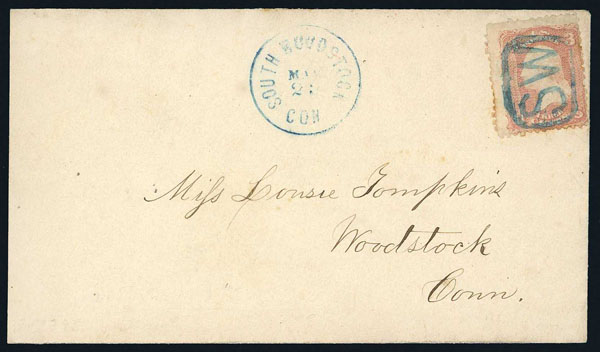 SOUTH WOODSTOCK
CON
SW
Miss Lousie Tompkins
Woodstock
Conn.